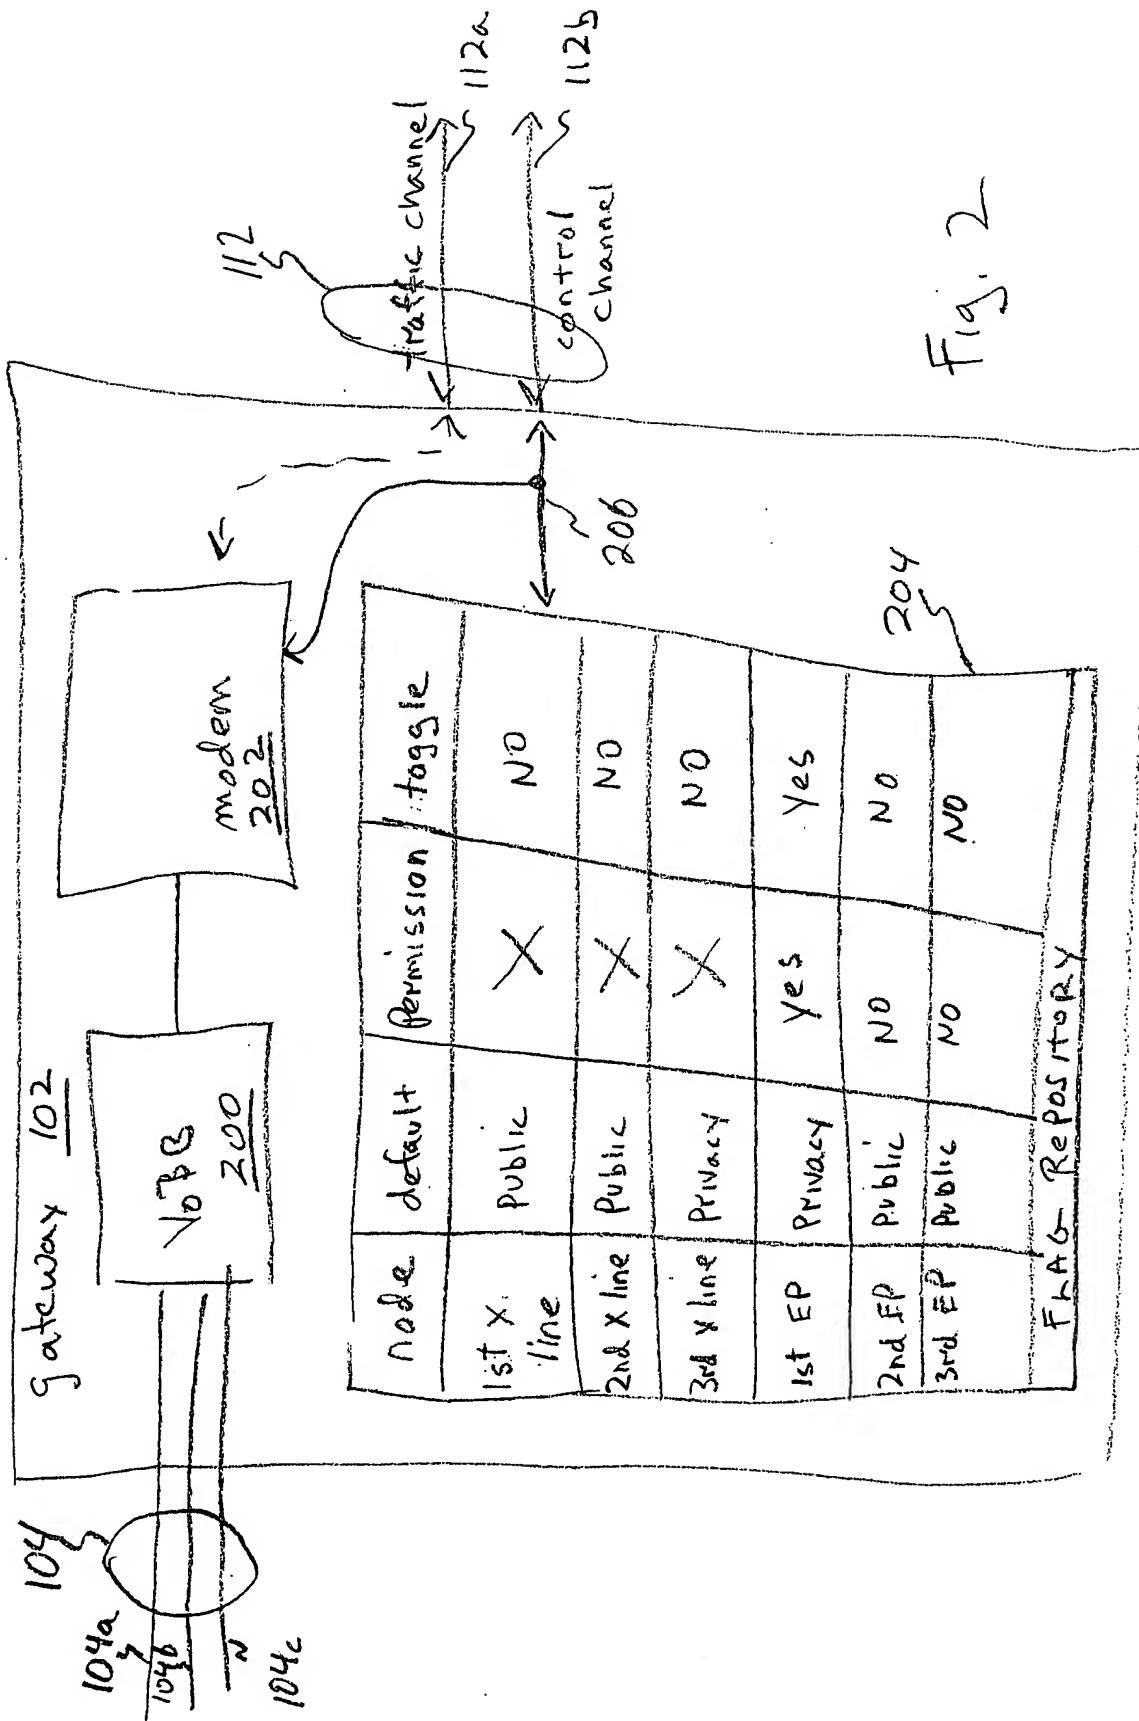 gateway 102
104
104a
104b
104c
VoBB
200
modem
202
112
traffic channel
112a
control
channel
112b
206
204
node default Permission toggle
1st X line Public X NO
2nd X line Public X NO
3rd X line Privacy X NO
1st EP Privacy Yes Yes
2nd EP Public NO NO
3rd EP Public NO NO
FLAG RePOSITORY
Fig. 2